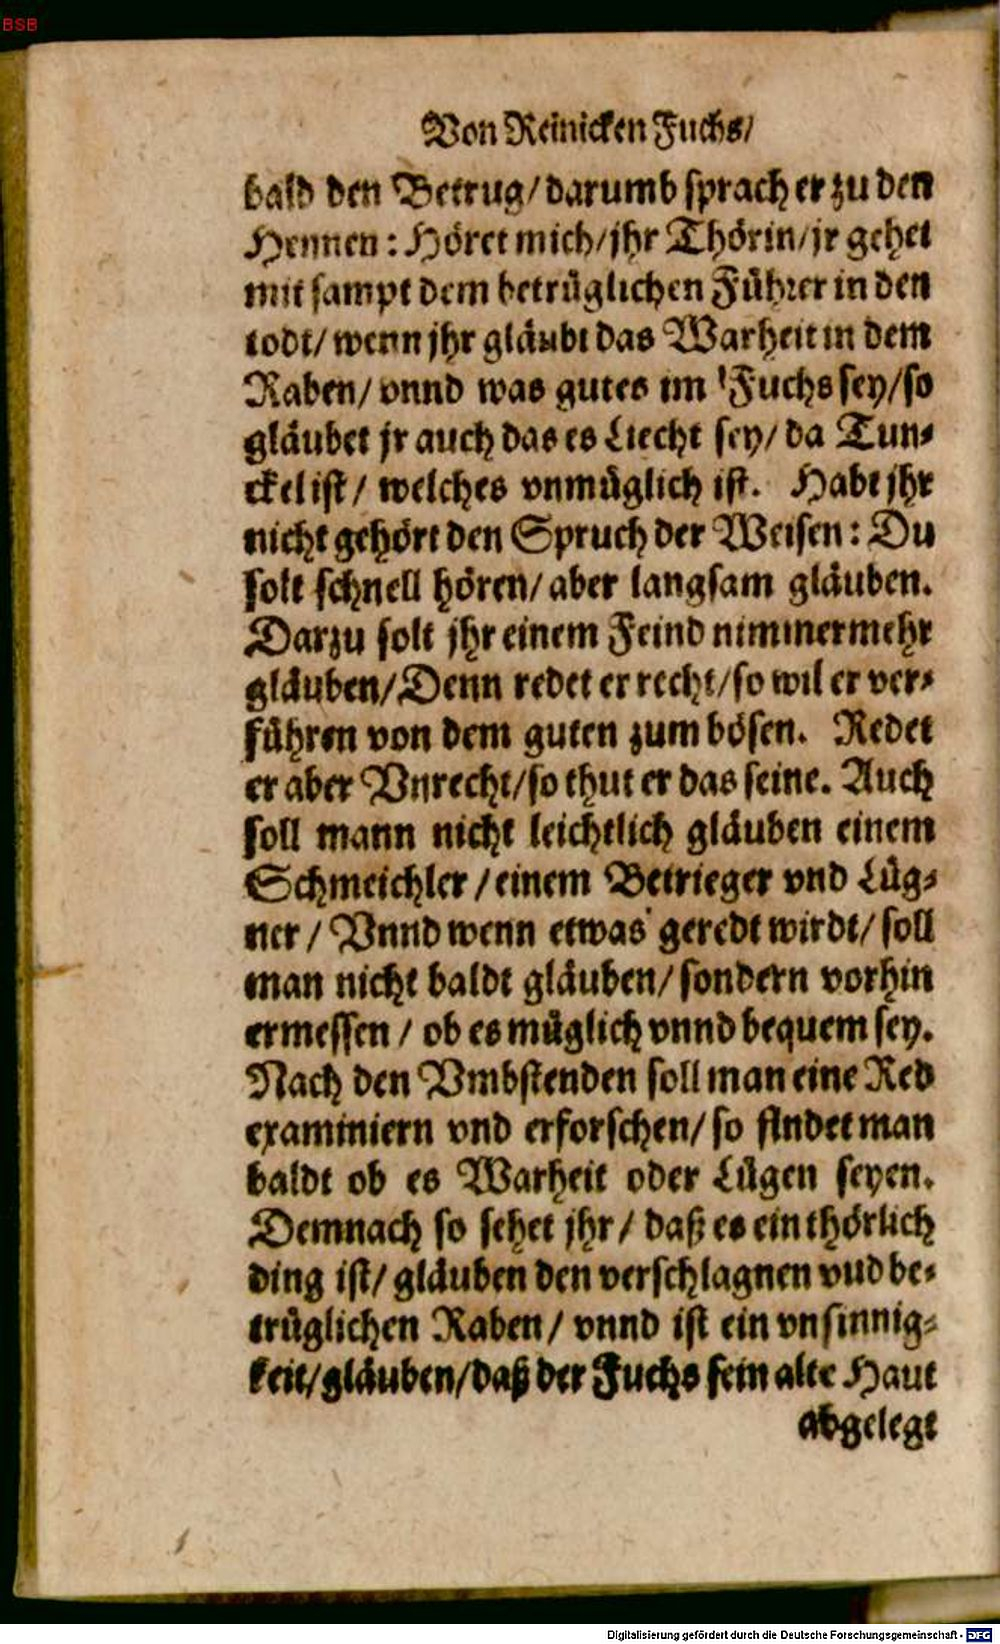 BSB
Von Reinicken Fuchs/
bald den Betrug/ darumb sprach er zu den
Hennen: Höret mich/ jhr Thörin/ jr gehet
mit sampt dem betrüglichen Führer in den
todt/ wenn jhr gläubt das Warheit in dem
Raben/ vnnd was gutes im Fuchs sey/ so
gläubet jr auch das es Liecht sey/ da Tun⸗
ckel ist/ welches vnmüglich ist. Habt jhr
nicht gehört den Spruch der Weisen: Du
solt schnell hören/ aber langsam gläuben.
Darzu solt jhr einem Feind nimmermehr
gläuben/ Denn redet er recht/ so wil er ver⸗
führen von dem guten zum bösen. Redet
er aber Vnrecht/ so thut er das seine. Auch
soll mann nicht leichtlich gläuben einem
Schmeichler/ einem Betrieger vnd Lüg⸗
ner/ Vnnd wenn etwas geredt wirdt/ soll
man nicht baldt gläuben/ sondern vorhin
ermessen/ ob es müglich vnnd bequem sey.
Nach den Vmbstenden soll man eine Red
examiniern vnd erforschen/ so findet man
baldt ob es Warheit oder Lügen seyen.
Demnach so sehet jhr/ daß es ein thörlich
ding ist/ gläuben den verschlagnen vud be⸗
trüglichen Raben/ vnnd ist ein vnsinnig⸗
keit/ gläuben/ daß der Fuchs sein alte Haut
abgelegt
Digitalisierung gefördert durch die Deutsche Forschungsgemeinschaft - DFG